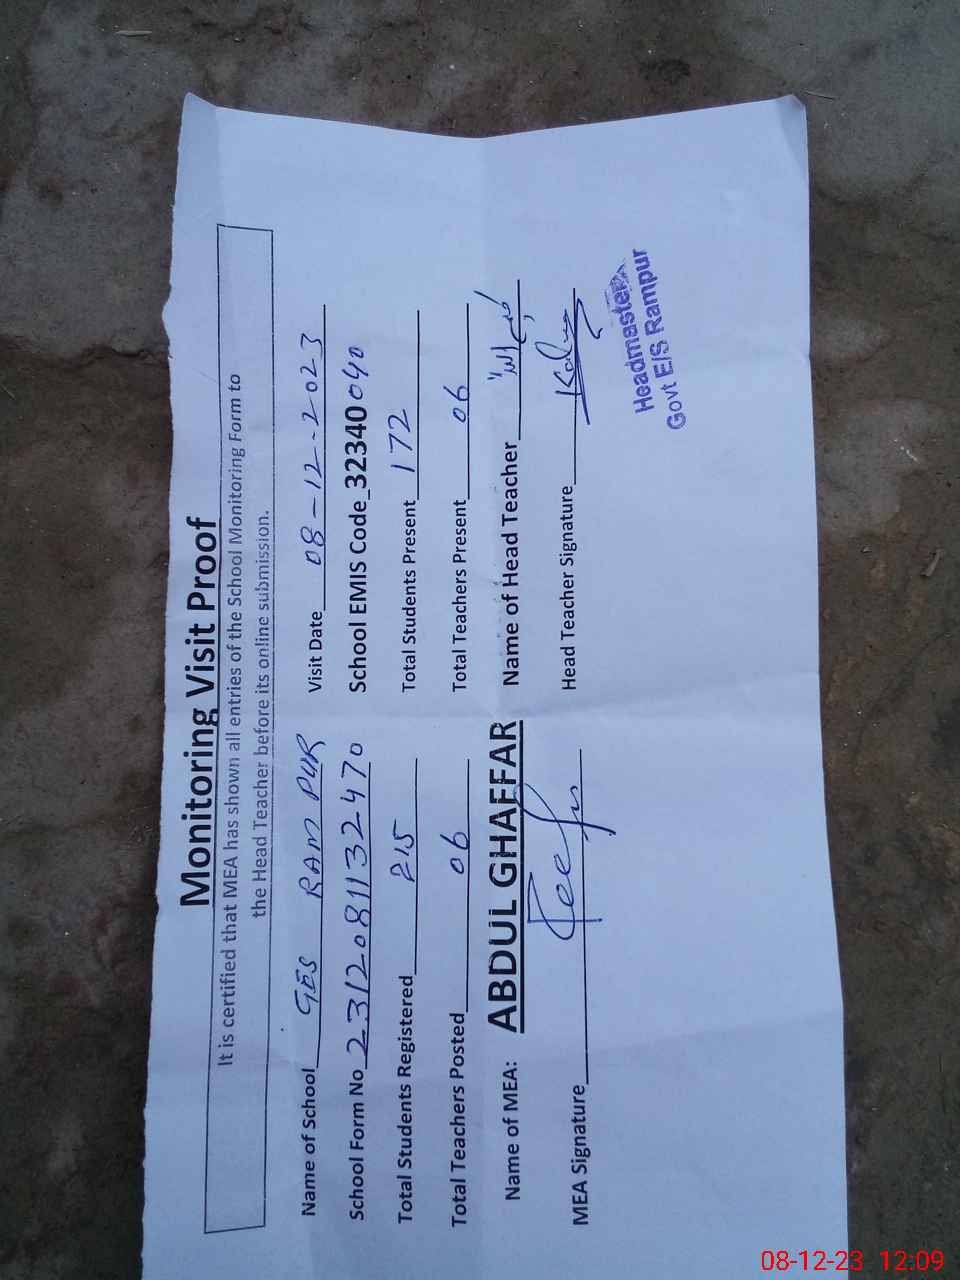 Monitoring Visit Proof
It is certified that MEA has shown all entries of the School Monitoring Form to
the Head Teacher before its online submission.
Name of School GES RAM PUR Visit Date 08-12-2023
School Form No 2312081132470 School EMIS Code_32340040
Total Students Registered 215 Total Students Present 172
Total Teachers Posted 06 Total Teachers Present 06
Name of MEA: ABDUL GHAFFAR Name of Head Teacher
MEA Signature Head Teacher Signature
Headmaster
Govt E/S Rampur
08-12-23 12:09